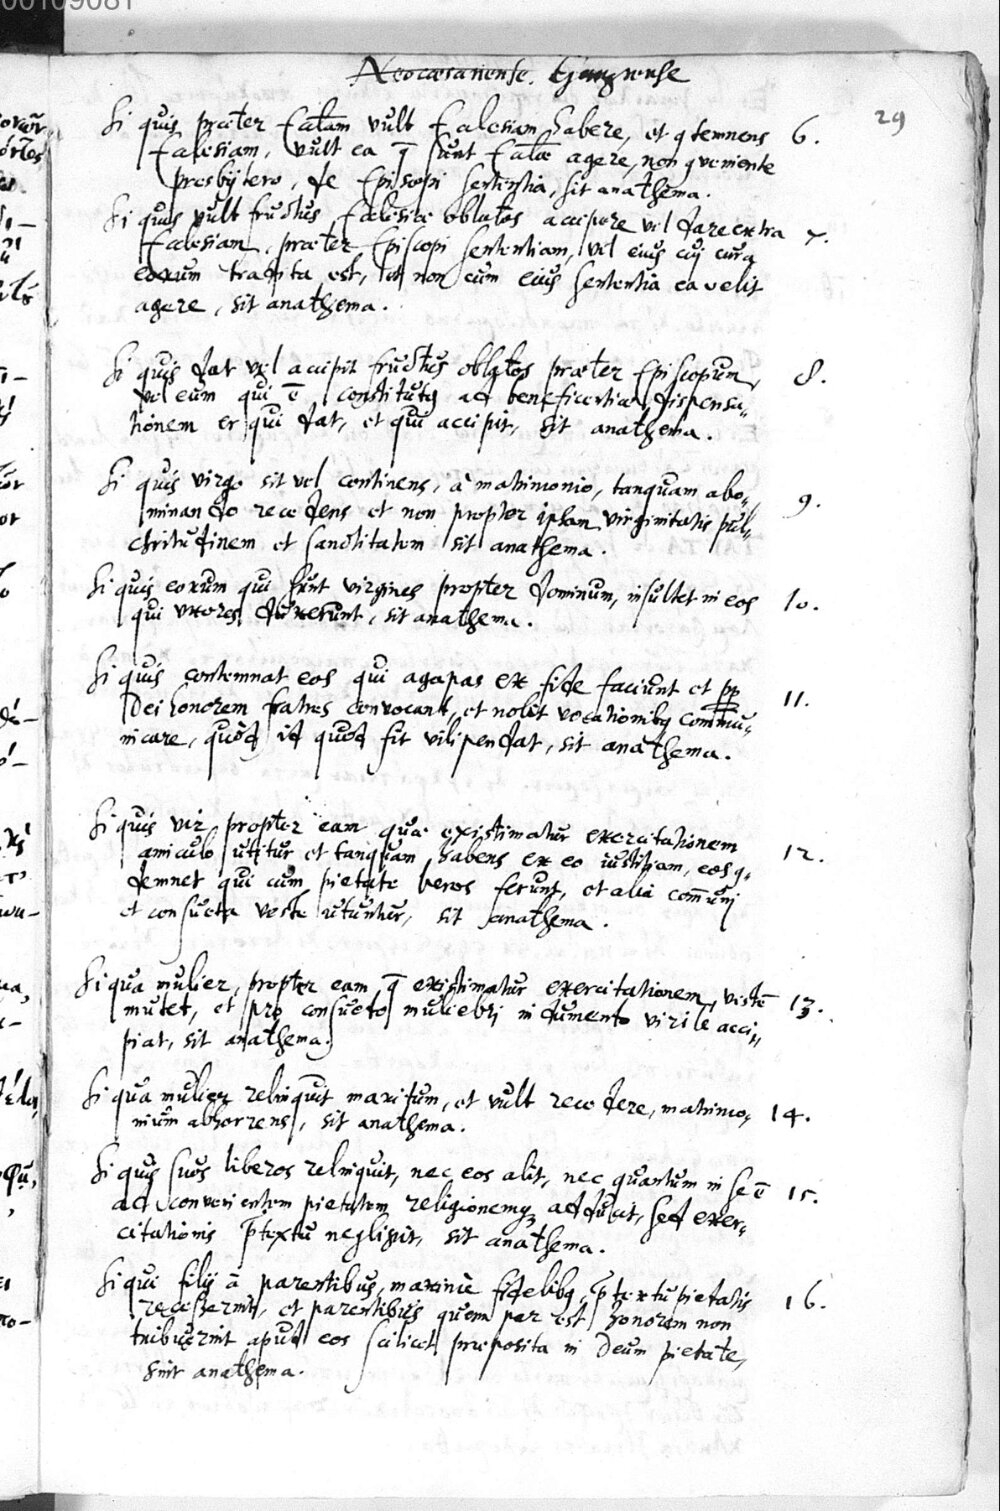 00109081
Neocæsariense. Gangrense
29
Si quis præter Eccl̃am vult Ecclesiam habere, et ꝯtemnens 6.
Ecclesiam, vult ea q̃ sunt Eccl̃æ agere, non ꝯveniente
presbytero, de Episcopi sententia, sit anathema.
Si quis vult fructus Ecclesiæ oblatos accipere vel dare extra 7.
Ecclesiam, præter Episcopi sententiam, vel eius cui cura
eorum tradita est, et non cum eius sententia ea velit
agere, sit anathema.
Si quis dat vel accipit fructus oblatos præter Episcopum, 8.
vel eum qui ẽ constitutꝯ ad beneficentiæ dispensa„
tionem et qui dat, et qui accipit, sit anathema.
Si quis virgo sit vel continens, à matrimonio, tanquam abo„ 9.
minando recedens et non propter ipsam virginitatis pul„
chritudinem et sanctitatem sit anathema.
Si quis eorum qui sunt virgines propter dominum, insultet in eos 10.
qui uxores duxerunt, sit anathema.
Si quis contemnat eos qui agapas ex fide faciunt et ꝓp 11.
Dei honorem fratres convocant, et nolit vocationibꝯ commu„
nicare, quòd id quod fit vilipendat, sit anathema.
Si quis vir propter eam quæ existimatur exercitationem 12.
amiculo utitur et tanquam habens ex eo iustitiam, eos ꝯ„
demnet qui cum pietate beros ferunt, et alia com̃uni
et consueta veste utuntur, sit anathema.
Si qua mulier, propter eam, q̃ existimatur exercitationem, vestẽ 13.
mutet, et pro consueto muliebri indumento virile acci„
piat, sit anathema.
Si qua mulier relinquit maritum, et vult recedere, matrimo„ 14.
nium abhorrens, sit anathema.
Si quis suos liberos relinquit, nec eos alit, nec quantum in se ẽ 15.
ad convenientem pietatem religionemq; adducit, sed exer„
citationis p̃textu negligit, sit anathema.
Si qui filij à parentibus, maximè fidelibꝯ, p̃textu pietatis 16.
recesserint, et parentibus quem par est honorem non
tribuerint apud eos scilicet præposita in Deum pietate,
sint anathema.